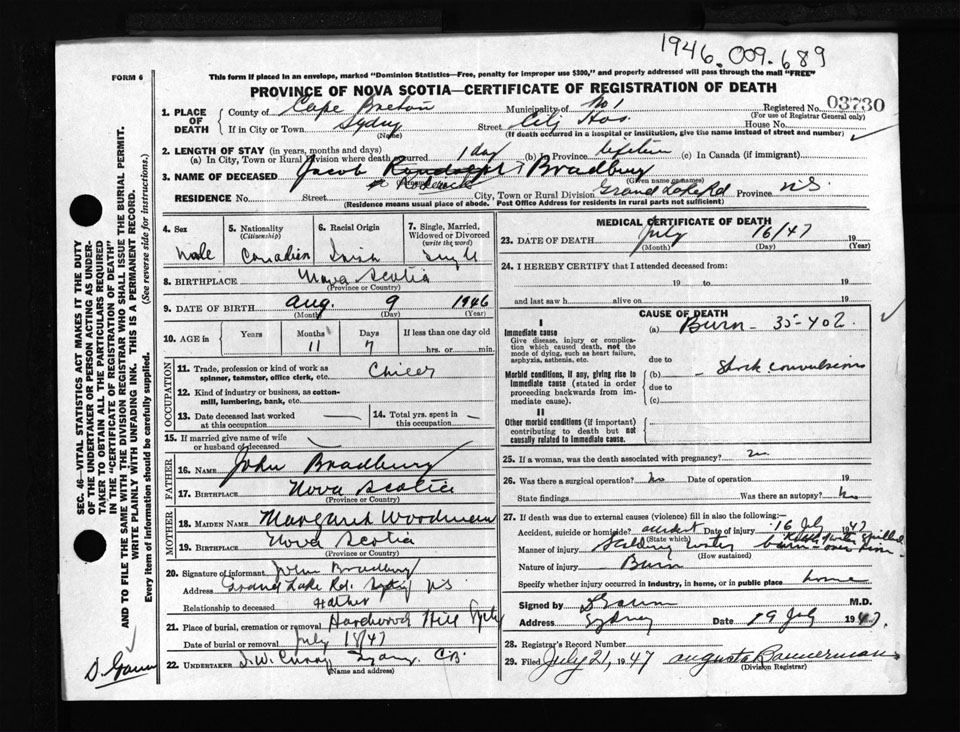 1946.009.689
FORM 6
This form if placed in an envelope, marked "Dominion Statistics—Free, penalty for improper use $300," and properly addressed will pass through the mail "FREE"
PROVINCE OF NOVA SCOTIA—CERTIFICATE OF REGISTRATION OF DEATH
1. PLACE OF DEATH County of Cape Breton Municipality of No 1 Registered No. 03730
(For use of Registrar General only)
If in City or Town Sydney Street City Hos. House No.
(Name) (If death occurred in a hospital or institution, give the name instead of street and number)
2. LENGTH OF STAY (in years, months and days)
(a) In City, Town or Rural Division where death occurred 1 day (b) In Province lifetime (c) In Canada (if immigrant)
3. NAME OF DECEASED Jacob Randolph Bradbury
(Given name or names)
RESIDENCE No. Street City, Town or Rural Division Grand Lake Rd Province N.S.
(Residence means usual place of abode. Post Office Address for residents in rural parts not sufficient)
4. Sex Male
5. Nationality (Citizenship) Canadian
6. Racial Origin Irish
7. Single, Married, Widowed or Divorced (write the word) Single
8. BIRTHPLACE Nova Scotia
(Province or Country)
9. DATE OF BIRTH Aug. 9 1946
(Month) (Day) (Year)
10. AGE in Years Months 11 Days 7 If less than one day old hrs. or min.
OCCUPATION
11. Trade, profession or kind of work as spinner, teamster, office clerk, etc.
12. Kind of industry or business, as cotton-mill, lumbering, bank, etc.
13. Date deceased last worked at this occupation
14. Total yrs. spent in this occupation
15. If married give name of wife or husband of deceased
FATHER
16. NAME John Bradbury
17. BIRTHPLACE Nova Scotia
(Province or Country)
MOTHER
18. MAIDEN NAME Margaret Woodman
19. BIRTHPLACE Nova Scotia
(Province or Country)
20. Signature of informant John Bradbury
Address Grand Lake Rd. Sydney NS
Relationship to deceased Father
21. Place of burial, cremation or removal Hardwood Hill Sydney
Date of burial or removal July 18/47
22. UNDERTAKER Sydney. C.B.
(Name and address)
MEDICAL CERTIFICATE OF DEATH
23. DATE OF DEATH July 16/47 19
(Month) (Day) (Year)
24. I HEREBY CERTIFY that I attended deceased from:
19 to 19
and last saw h alive on 19
CAUSE OF DEATH
I
Immediate cause
Give disease, injury or complication which caused death, not the mode of dying, such as heart failure, asphyxia, asthenia, etc.
(a) Burn - 35-40%
due to
Morbid conditions, if any, giving rise to immediate cause (stated in order proceeding backwards from immediate cause).
(b) - Shock convulsions
due to
(c)
II
Other morbid conditions (if important) contributing to death but not causally related to immediate cause.
25. If a woman, was the death associated with pregnancy?
26. Was there a surgical operation? No Date of operation 19
State findings Was there an autopsy? No
27. If death was due to external causes (violence) fill in also the following:—
Accident, suicide or homicide? accident Date of injury 16 July 1947
(State which)
Manner of injury Scalding water
(How sustained)
Nature of injury - Burn
Specify whether injury occurred in industry, in home, or in public place home
Signed by M.D.
Address Sydney Date 19 July 1947.
28. Registrar's Record Number
29. Filed July 21, 1947 Augusta Bannerman
(Division Registrar)
SEC. 46—VITAL STATISTICS ACT MAKES IT THE DUTY OF THE UNDERTAKER OR PERSON ACTING AS UNDERTAKER TO OBTAIN ALL THE PARTICULARS REQUIRED IN THE "CERTIFICATE OF REGISTRATION OF DEATH"
AND TO FILE THE SAME WITH THE DIVISION REGISTRAR WHO SHALL ISSUE THE BURIAL PERMIT.
WRITE PLAINLY WITH UNFADING INK. THIS IS A PERMANENT RECORD.
Every item of information should be carefully supplied. (See reverse side for instructions.)